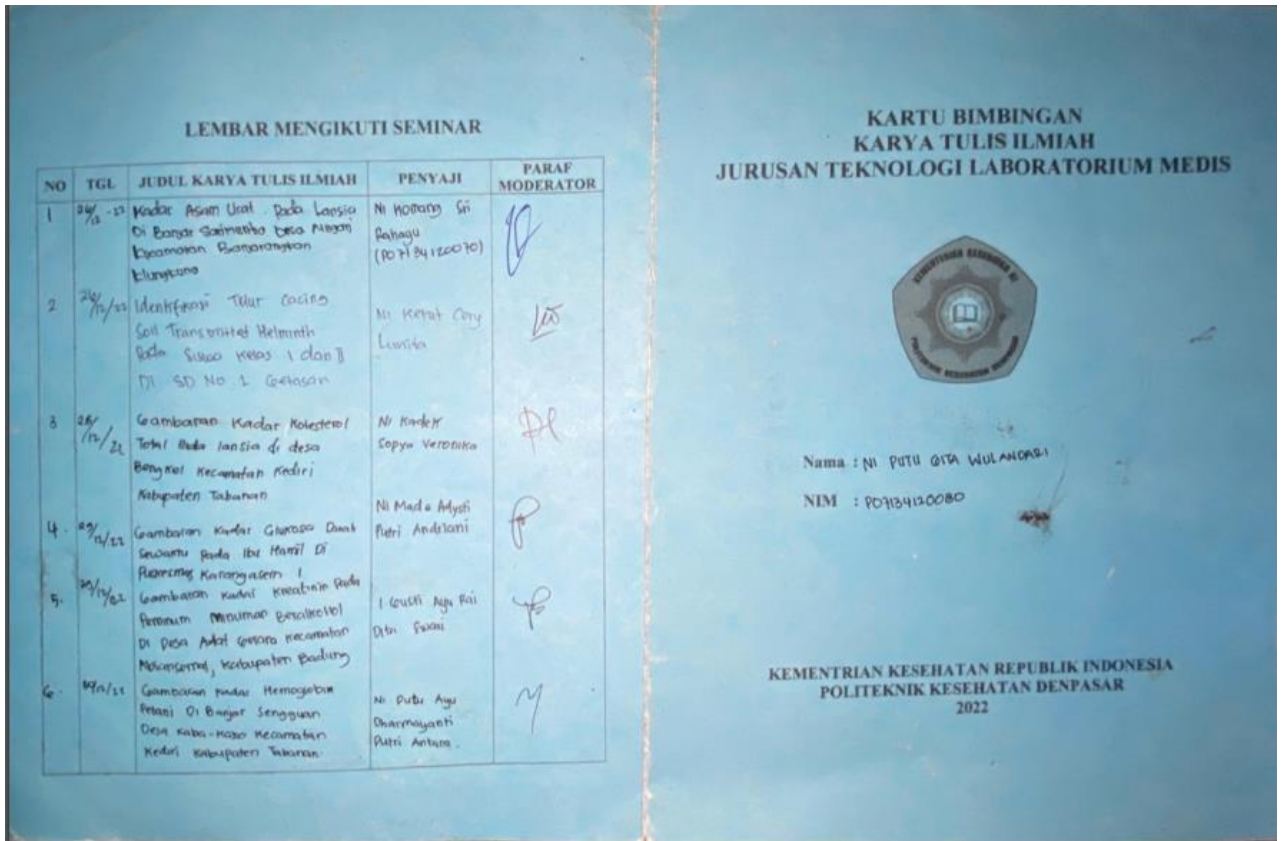 LEMBAR MENGIKUTI SEMINAR
NO TGL JUDUL KARYA TULIS ILMIAH PENYAJI PARAF MODERATOR
1 Kadar Asam Urat Pada Lansia
Di Banjar Sarimertha Desa Negari
Kecamatan Banjarangkan
Klungkung
Ni Komang Sri
Rahayu
(P07134120070)
2 Identifikasi Telur Cacing
Soil Transmitted Helminth
Pada Siswa Kelas I dan II
Di SD No. 1 Getasan
Ni Ketut Cory
3 Gambaran Kadar Kolesterol
Total Pada lansia di desa
Kecamatan Kediri
Kabupaten Tabanan
Ni Kadek
Sopya Veronika
4. Gambaran Kadar Glukosa Darah
Sewaktu Pada Ibu Hamil Di
Karangasem 1
Ni Made Adysti
Putri Andriani
5. Gambaran Kadar Kreatinin Pada
Peminum Minuman Beralkohol
Di Desa Adat Kecamatan
Kabupaten Badung
I Gusti Ayu Rai
6. Gambaran Kadar Hemoglobin
Petani Di Banjar Sengguan
Desa Kaba-Kaba Kecamatan
Kediri Kabupaten Tabanan.
Ni Putu Ayu
Dharmayanti
Putri Antara.
KARTU BIMBINGAN
KARYA TULIS ILMIAH
JURUSAN TEKNOLOGI LABORATORIUM MEDIS
KEMENTERIAN KESEHATAN RI
POLITEKNIK KESEHATAN DENPASAR
Nama : NI PUTU GITA WULANDARI
NIM : P07134120080
KEMENTRIAN KESEHATAN REPUBLIK INDONESIA
POLITEKNIK KESEHATAN DENPASAR
2022